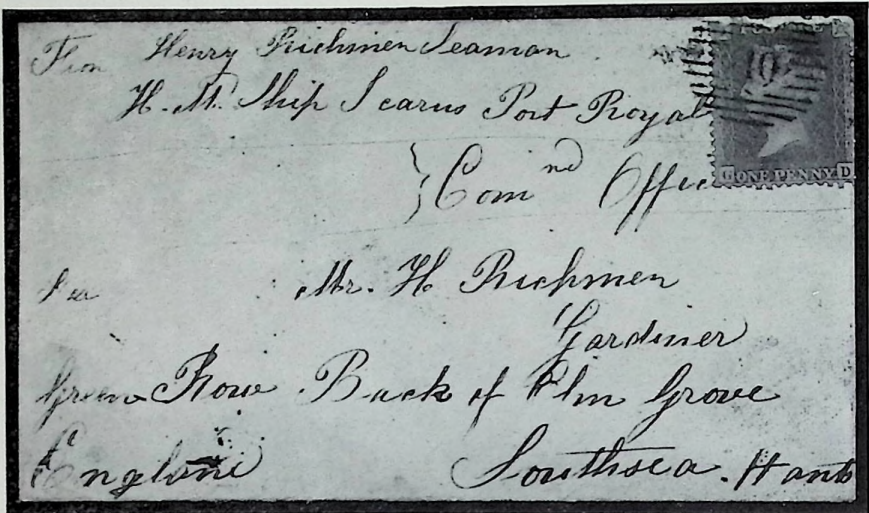 From Henry Richmen Seaman
H. M. Ship Icarus Port Royal
Com nd Offic
10
G ONE PENNY D
Mr. H Richmen
Gardiner
Green Row. Back of Elm Grove
England Southsea. Hants